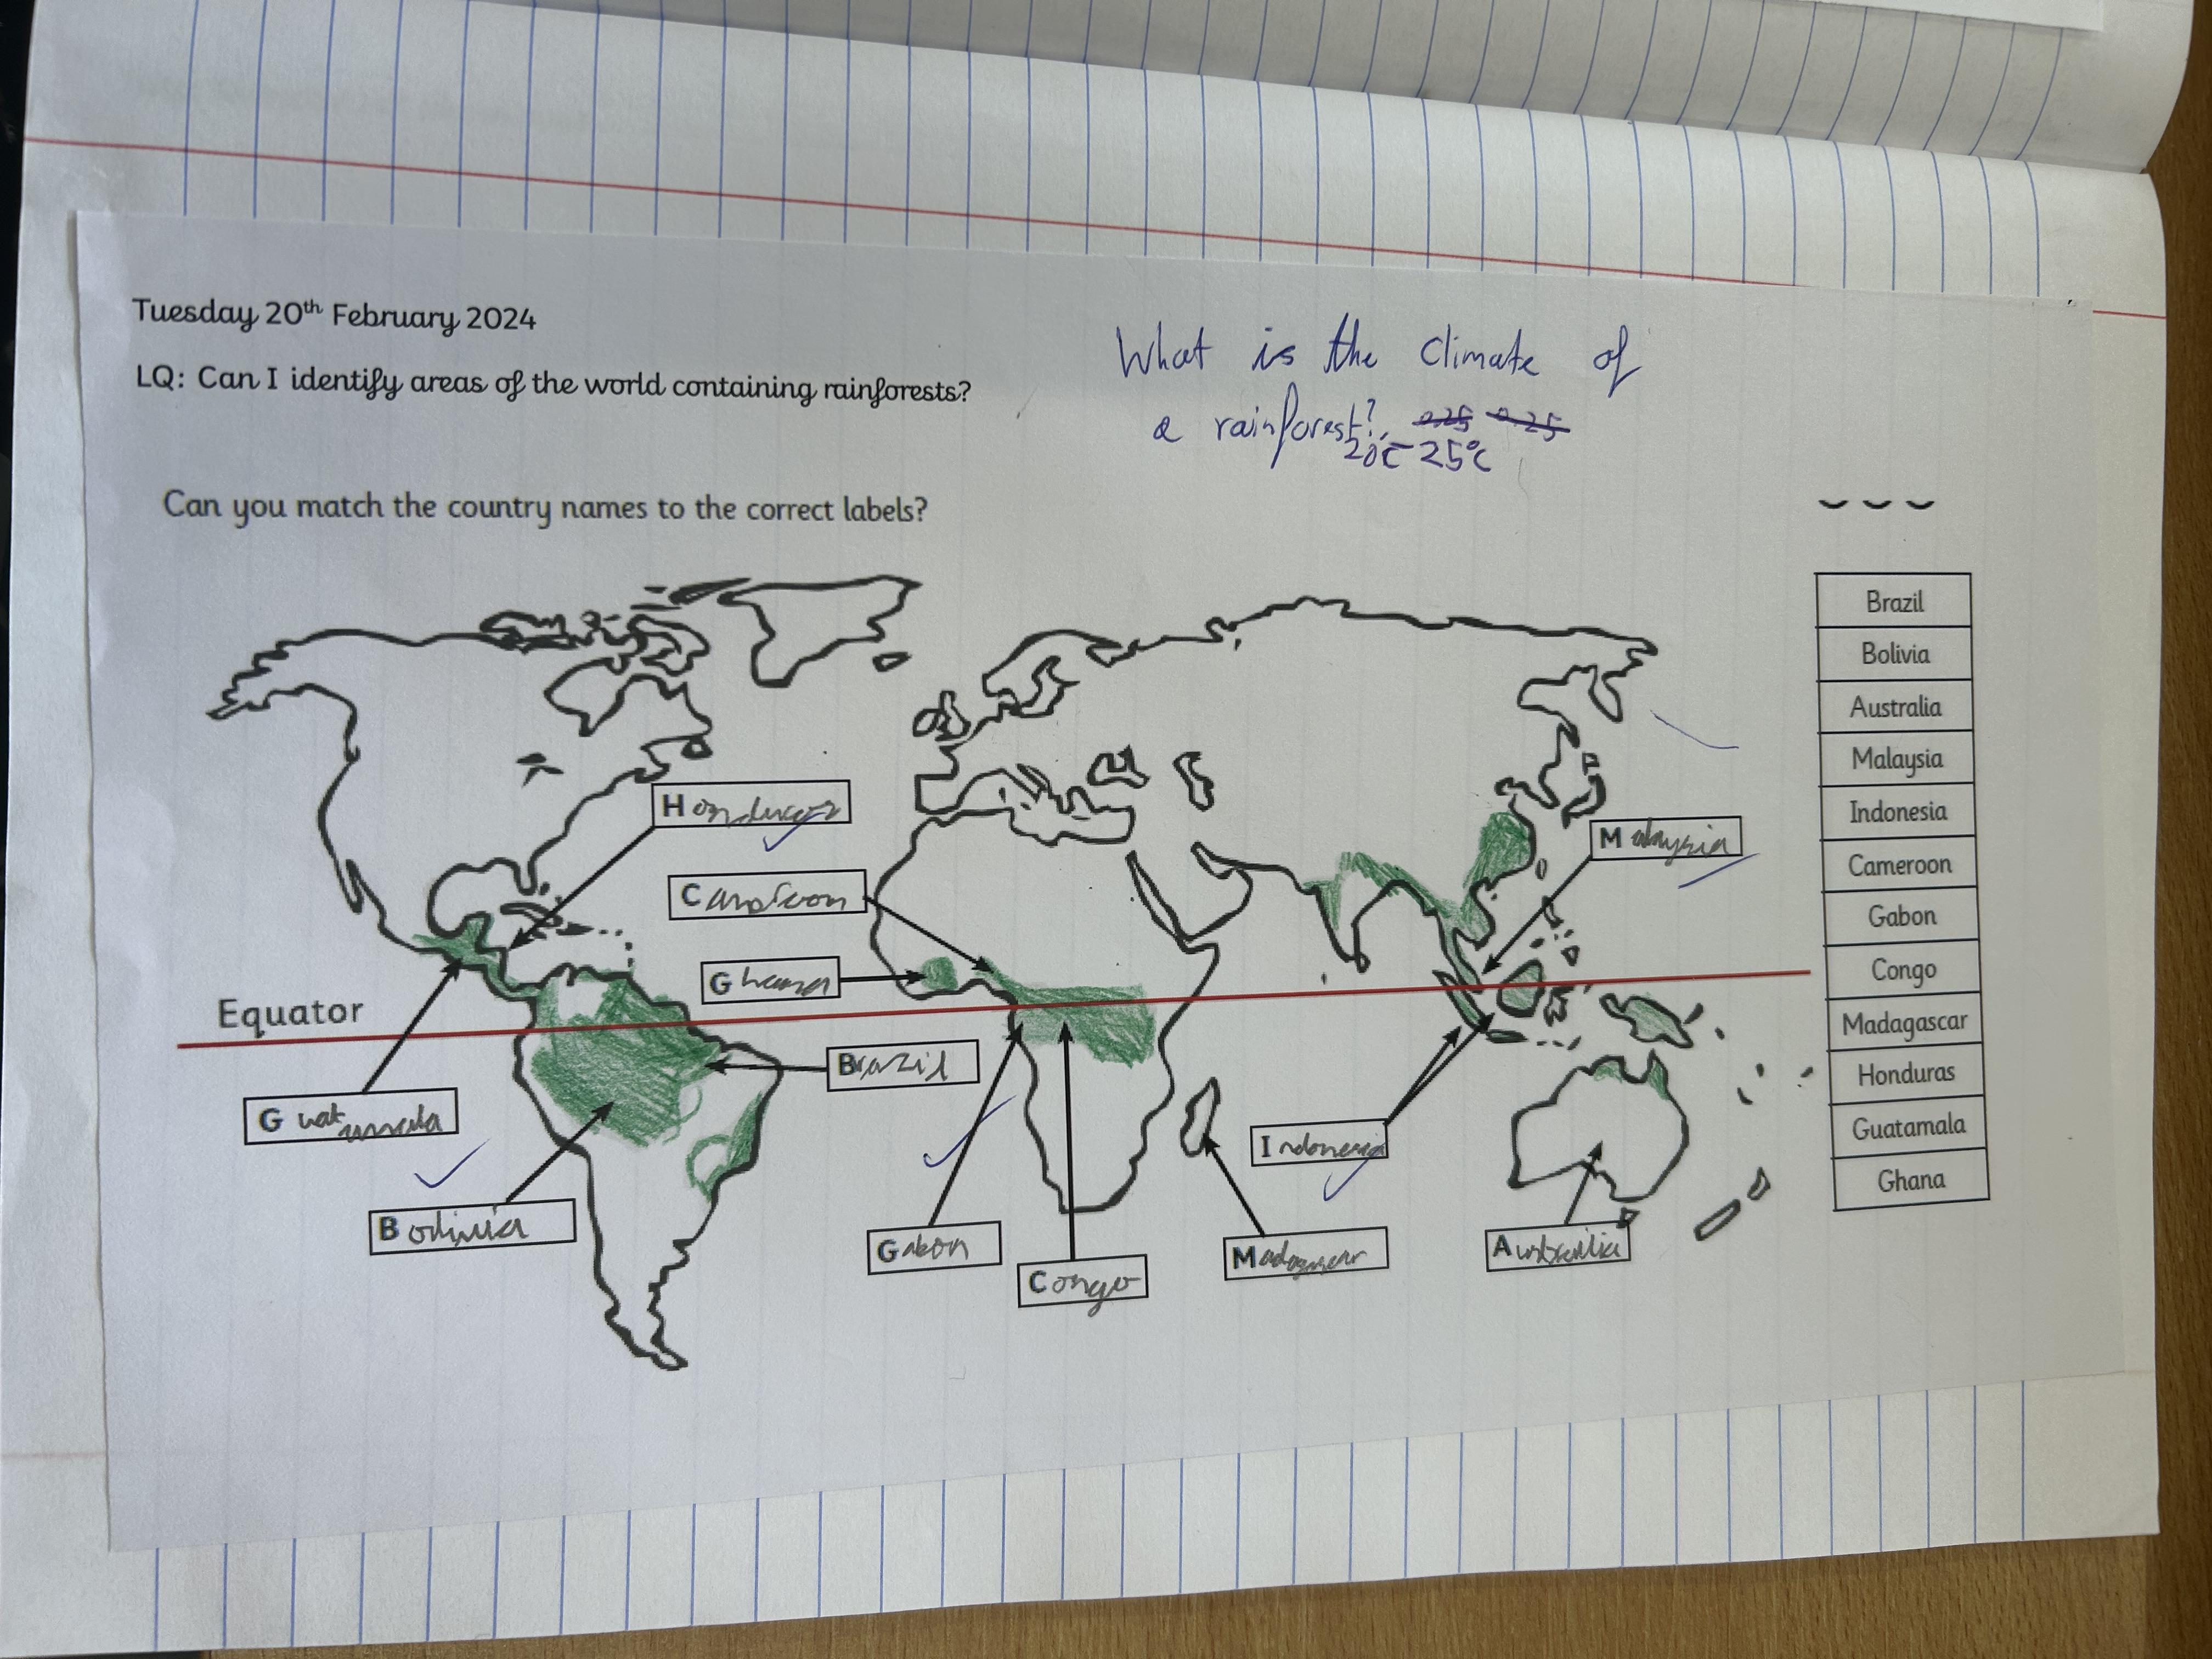 Tuesday 20th February 2024
LQ: Can I identify areas of the world containing rainforests?
What is the climate of
a rainforest?
20c - 25°c
Can you match the country names to the correct labels?
Brazil
Bolivia
Australia
Malaysia
Indonesia
Cameroon
Gabon
Congo
Madagascar
Honduras
Guatamala
Ghana
Honduras
Malaysia
Ghana
Equator
Brazil
Guat
Indonesia
Bolivia
Gabon
Congo
Australia